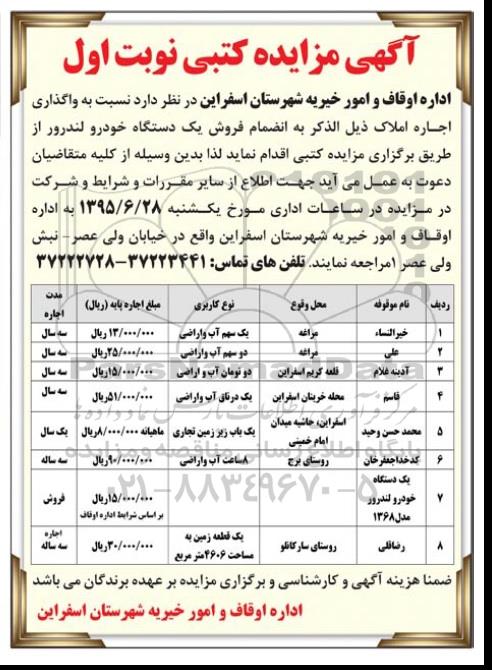 آگهی مزایده کتبی نوبت اول
اداره اوقاف و امور خیریه شهرستان اسفراین در نظر دارد نسبت به واگذاری
اجاره املاک ذیل الذکر به انضمام فروش یک دستگاه خودرو لندرور از
طریق برگزاری مزایده کتبی اقدام نماید لذا بدین وسیله از کلیه متقاضیان
دعوت به عمل می آید جهت اطلاع از سایر مقررات و شرایط و شرکت
در مزایده در ساعات اداری مورخ یکشنبه ۱۳۹۵/۶/۲۸ به اداره
اوقاف و امور خیریه شهرستان اسفراین واقع در خیابان ولی عصر- نبش
ولی عصر ۱مراجعه نمایند. تلفن های تماس: ۳۷۲۲۳۴۴۱-۳۷۲۲۲۷۲۸
ردیف نام موقوفه محل وقوع نوع کاربری مبلغ اجاره پایه (ریال) مدت اجاره
۱ خیرالنساء مراغه یک سهم آب واراضی ۱۳/۰۰۰/۰۰۰ ریال سه سال
۲ علی مراغه دو سهم آب واراضی ۲۵/۰۰۰/۰۰۰ریال سه سال
۳ آدینه غلام قلعه کریم اسفراین دو تومان آب و اراضی ۱۵/۰۰۰/۰۰۰ریال سه سال
۴ قاسم محله خرینان اسفراین یک درناق آب واراضی ۵۱/۰۰۰/۰۰۰ریال سه سال
۵ محمد حسن وحید اسفراین، حاشیه میدان امام خمینی یک باب زیر زمین تجاری ماهیانه ۸/۰۰۰/۰۰۰ریال یک سال
۶ کدخداجعفرخان روستای برج ۸ساعت آب واراضی ۹۰/۰۰۰/۰۰۰ریال سه ساله
۷ یک دستگاه خودرو لندرور مدل۱۳۶۸ ۱۵/۰۰۰/۰۰۰ریال بر اساس شرایط اداره اوقاف فروش
۸ رضاقلی روستای سارکانلو یک قطعه زمین به مساحت ۴۶۰۶متر مربع ۳۰/۰۰۰/۰۰۰ریال اجاره سه ساله
ضمنا هزینه آگهی و کارشناسی و برگزاری مزایده بر عهده برندگان می باشد
اداره اوقاف و امور خیریه شهرستان اسفراین
ParsNamadData
مرکز فرآوری اطلاعات پارس نماد داده ها
پایگاه اطلاع رسانی مناقصه و مزایده
۰۲۱-۸۸۳۴۹۶۷۰-۵